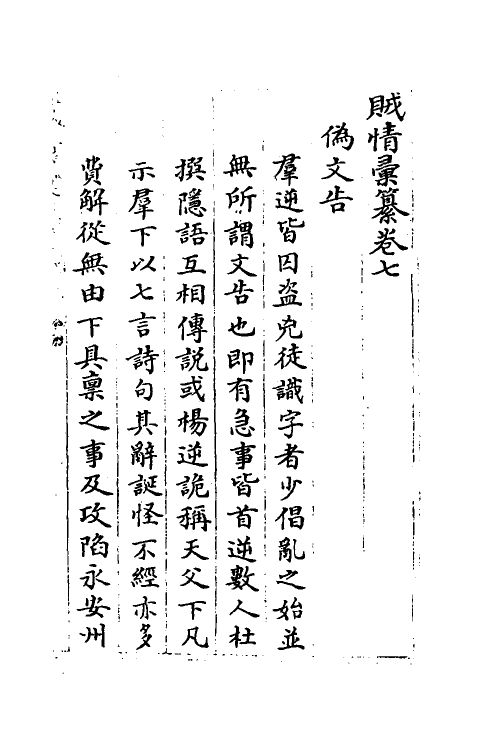 賊情彙纂卷七
偽文告
羣逆皆囚盜兇徒識字者少倡亂之始並
無所謂文告也即有急事皆首逆數人杜
撰隱語互相傳説或楊逆詭稱天父下凡
示羣下以七言詩句其辭誕怪不經亦多
費解從無由下具稟之事及攻陷永安州